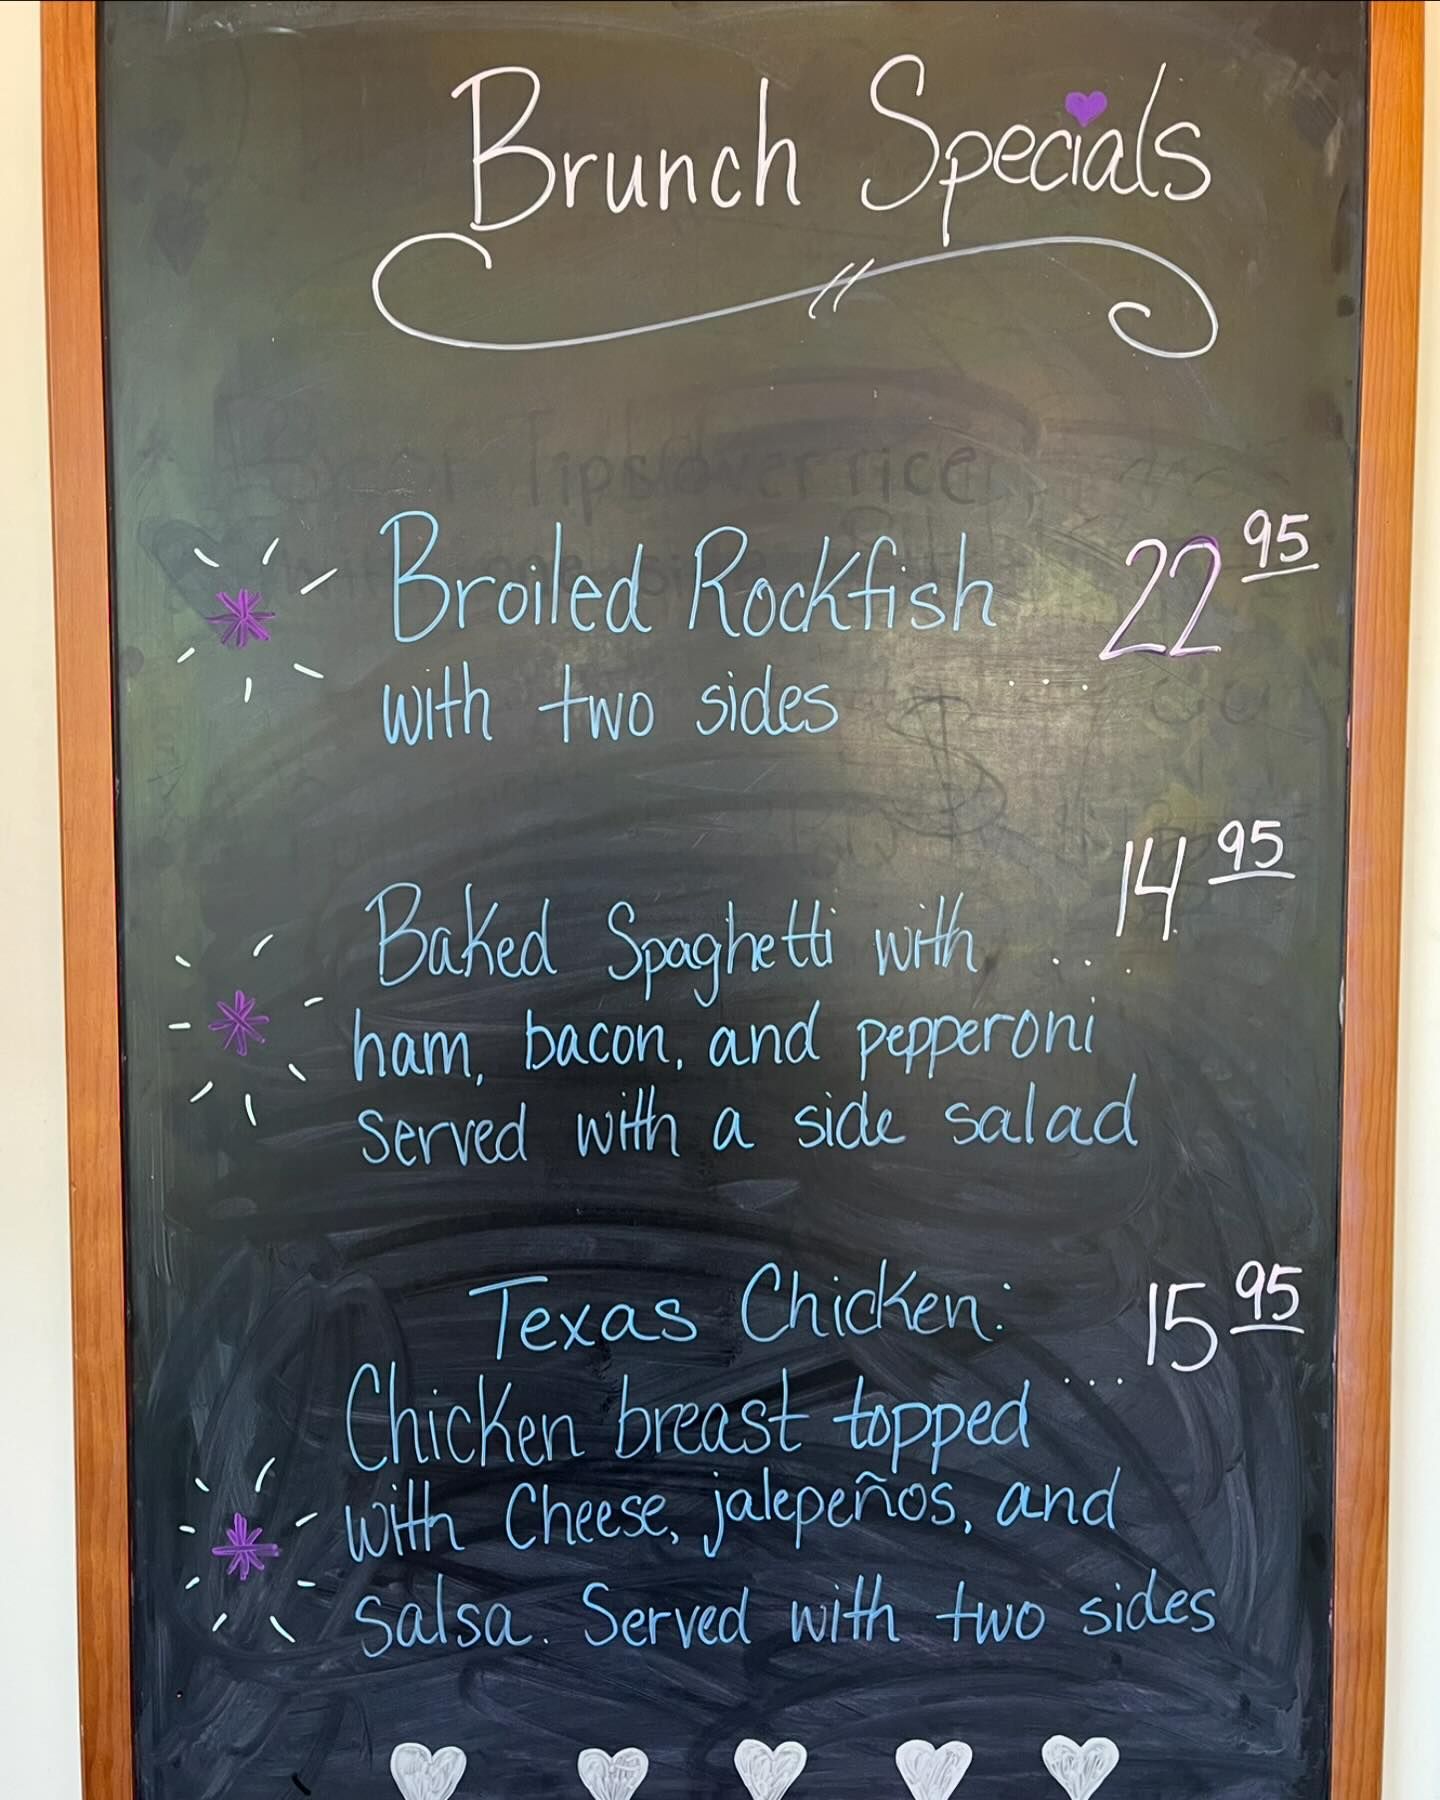 Brunch Specials
Broiled Rockfish 22 95
with two sides ...
14 95
Baked Spaghetti with ...
ham, bacon, and pepperoni
served with a side salad
Texas Chicken: 15 95
Chicken breast topped ...
with Cheese, jalepeños, and
salsa. Served with two sides
Tips over rice